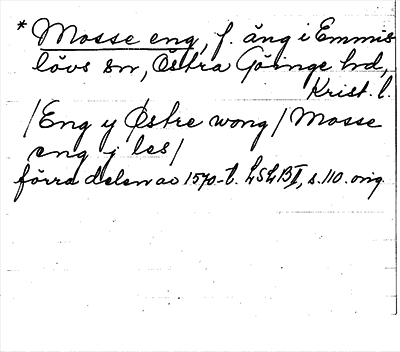 * Mosse eng, f. äng i Emmis-
lövs sn, Östra Göinge hd,
Krist. l.
/Eng y Østre wong/ Mosse
eng y les/
förra delen av 1570-t. LSLB I, s. 110. orig.